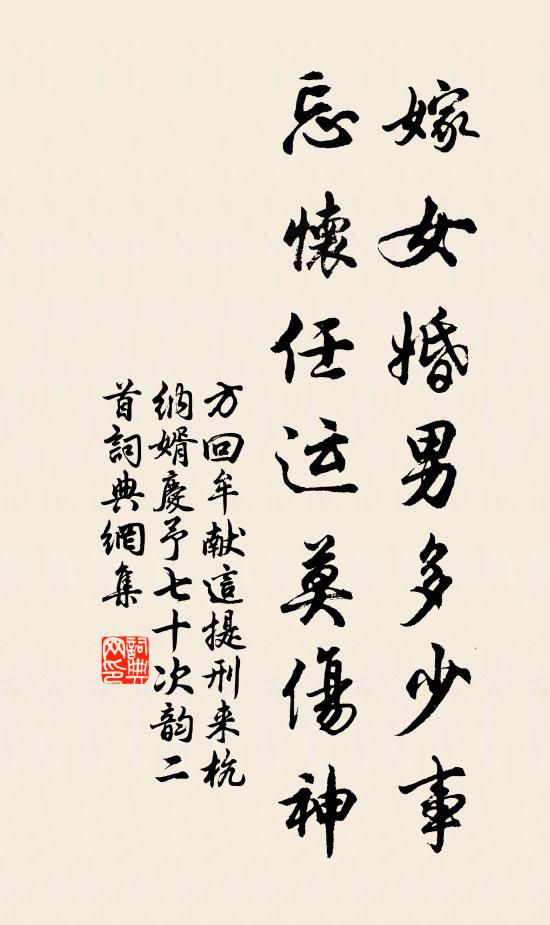 嫁女婚男多少事
忘懷任运莫傷神
方回牟献這提刑来杭
纳婿慶予七十次韵二
首詞典網集
詞典网印